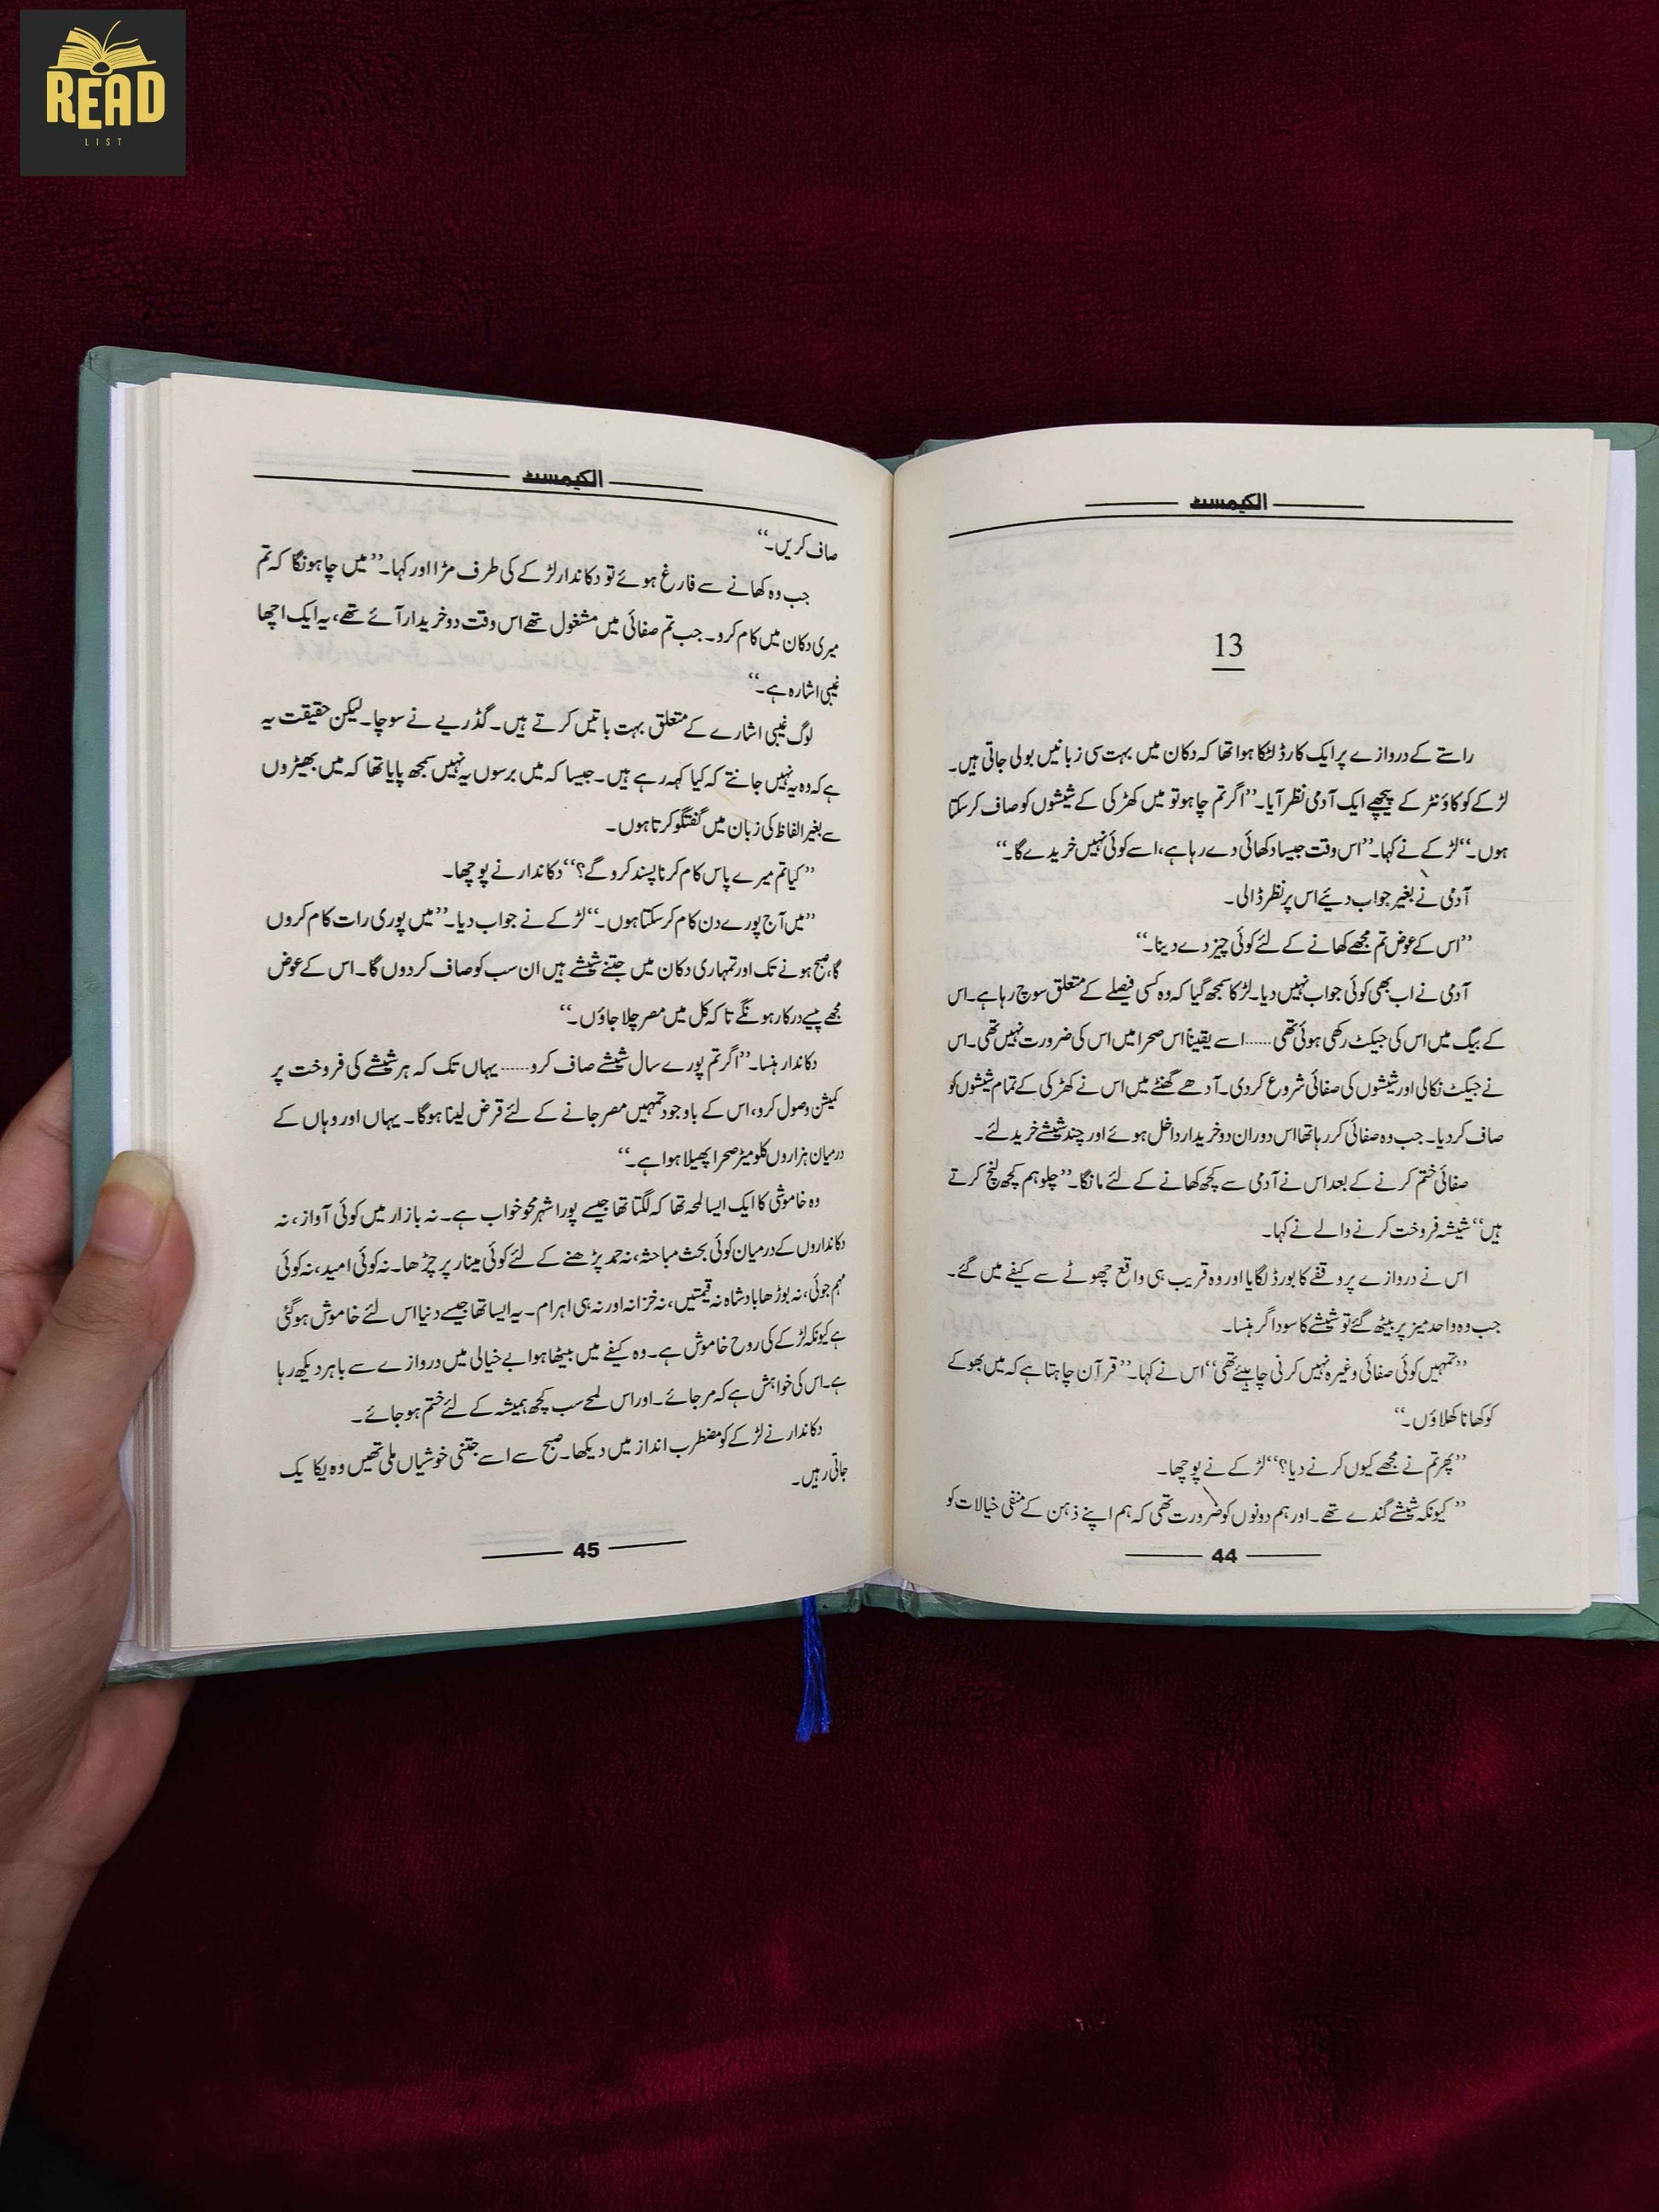 READ
LIST
الکیمسٹ
13
راستے کے دروازے پر ایک کارڈ لٹکا ہوا تھا کہ دکان میں بہت سی زبانیں بولی جاتی ہیں۔
لڑکے کو کاؤنٹر کے پیچھے ایک آدمی نظر آیا۔ ’’اگر تم چاہو تو میں کھڑکی کے شیشوں کو صاف کر سکتا
ہوں۔‘‘ لڑکے نے کہا۔ ’’اس وقت جیسا دکھائی دے رہا ہے، اسے کوئی نہیں خریدے گا۔‘‘
آدمی نے بغیر جواب دیئے اس پر نظر ڈالی۔
’’اس کے عوض تم مجھے کھانے کے لئے کوئی چیز دے دینا۔‘‘
آدمی نے اب بھی کوئی جواب نہیں دیا۔ لڑکا سمجھ گیا کہ وہ کسی فیصلے کے متعلق سوچ رہا ہے۔ اس
کے بیگ میں اس کی جیکٹ رکھی ہوئی تھی...... اسے یقیناً اس صحرا میں اس کی ضرورت نہیں تھی۔ اس
نے جیکٹ نکالی اور شیشوں کی صفائی شروع کردی۔ آدھے گھنٹے میں اس نے کھڑکی کے تمام شیشوں کو
صاف کر دیا۔ جب وہ صفائی کر رہا تھا اس دوران دو خریدار داخل ہوئے اور چند شیشے خرید لئے۔
صفائی ختم کرنے کے بعد اس نے آدمی سے کچھ کھانے کے لئے مانگا۔ ’’چلو ہم کچھ لنچ کرتے
ہیں‘‘ شیشہ فروخت کرنے والے نے کہا۔
اس نے دروازے پر وقفے کا بورڈ لگایا اور وہ قریب ہی واقع چھوٹے سے کیفے میں گئے۔
جب وہ واحد میز پر بیٹھ گئے تو شیشے کا سوداگر ہنسا۔
’’تمہیں کوئی صفائی وغیرہ نہیں کرنی چاہیئے تھی‘‘ اس نے کہا۔ ’’قرآن چاہتا ہے کہ میں بھوکے
کو کھانا کھلاؤں۔‘‘
’’پھر تم نے مجھے کیوں کرنے دیا؟‘‘ لڑکے نے پوچھا۔
’’کیونکہ شیشے گندے تھے۔ اور ہم دونوں کو ضرورت تھی کہ ہم اپنے ذہن کے منفی خیالات کو
44
الکیمسٹ
صاف کریں۔‘‘
جب وہ کھانے سے فارغ ہوئے تو دکاندار لڑکے کی طرف مڑا اور کہا۔ ’’میں چاہونگا کہ تم
میری دکان میں کام کرو۔ جب تم صفائی میں مشغول تھے اس وقت دو خریدار آئے تھے، یہ ایک اچھا
غیبی اشارہ ہے۔‘‘
لوگ غیبی اشارے کے متعلق بہت باتیں کرتے ہیں۔ گڈریے نے سوچا۔ لیکن حقیقت یہ
ہے کہ وہ یہ نہیں جانتے کہ کیا کہہ رہے ہیں۔ جیسا کہ میں برسوں یہ نہیں سمجھ پایا تھا کہ میں بھیڑوں
سے بغیر الفاظ کی زبان میں گفتگو کرتا ہوں۔
’’کیا تم میرے پاس کام کرنا پسند کرو گے؟‘‘ دکاندار نے پوچھا۔
’’میں آج پورے دن کام کر سکتا ہوں۔‘‘ لڑکے نے جواب دیا۔ ’’میں پوری رات کام کروں
گا، صبح ہونے تک اور تمہاری دکان میں جتنے شیشے ہیں ان سب کو صاف کردوں گا۔ اس کے عوض
مجھے پیسے درکار ہونگے تاکہ کل میں مصر چلا جاؤں۔‘‘
دکاندار ہنسا۔ ’’اگر تم پورے سال شیشے صاف کرو...... یہاں تک کہ ہر شیشے کی فروخت پر
کمیشن وصول کرو، اس کے باوجود تمہیں مصر جانے کے لئے قرض لینا ہوگا۔ یہاں اور وہاں کے
درمیان ہزاروں کلومیٹر صحرا پھیلا ہوا ہے۔‘‘
وہ خاموشی کا ایک ایسا لمحہ تھا کہ لگتا تھا جیسے پورا شہر محو خواب ہے۔ نہ بازار میں کوئی آواز، نہ
دکانداروں کے درمیان کوئی بحث مباحثہ، نہ حمد پڑھنے کے لئے کوئی مینار پر چڑھا۔ نہ کوئی امید، نہ کوئی
مہم جوئی، نہ بوڑھا بادشاہ نہ قیمتیں، نہ خزانہ اور نہ ہی اہرام۔ یہ ایسا تھا جیسے دنیا اس لئے خاموش ہوگئی
ہے کیونکہ لڑکے کی روح خاموش ہے۔ وہ کیفے میں بیٹھا ہوا بے خیالی میں دروازے سے باہر دیکھ رہا
ہے۔ اس کی خواہش ہے کہ مر جائے۔ اور اس لمحے سب کچھ ہمیشہ کے لئے ختم ہو جائے۔
دکاندار نے لڑکے کو مضطرب انداز میں دیکھا۔ صبح سے اسے جتنی خوشیاں ملی تھیں وہ یکا یک
جاتی رہیں۔
45